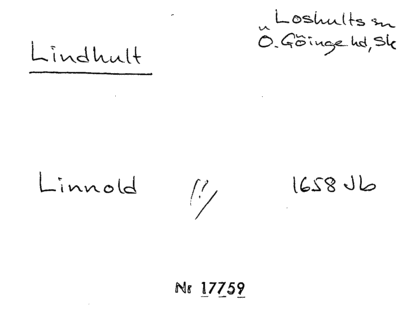 Loshults sn
Lindhult
Ö. Göinge hd, Sk
Linnold (?) 1658 Jb
Nr 17759